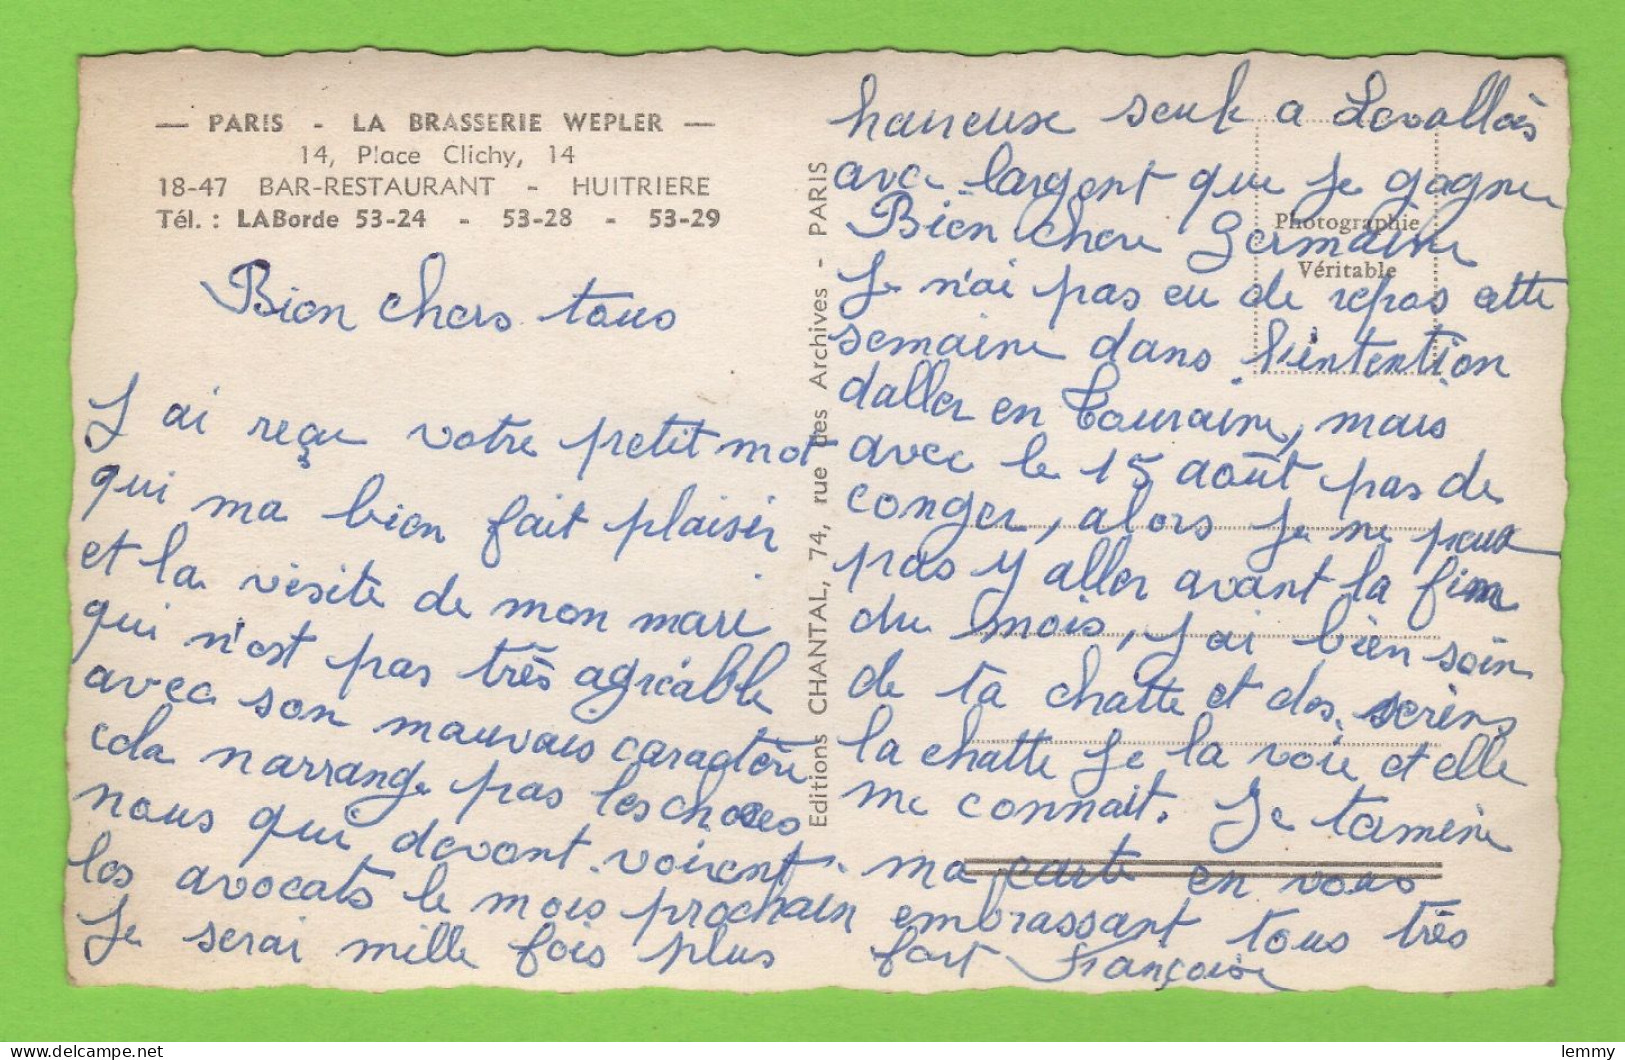 — PARIS - LA BRASSERIE WEPLER —
14, Place Clichy, 14
18-47 BAR-RESTAURANT - HUITRIERE
Tél. : LABorde 53-24 - 53-28 - 53-29
Bien chers tous
J ai reçu votre petit mot
qui ma bien fait plaisir
et la visite de mon mari
qui n'est pas très agréable
avec son mauvais caractère
cela narrange pas les choses
nous qui devont voirent
les avocats le mois prochain
Je serai mille fois plus
Editions CHANTAL, 74, rue des Archives - PARIS
heureuse seule a Levallois
avec largent que je gagne
Bien chere Germaine
Je n'ai pas eu de repos cette
semaine dans l'intention
daller en Touraine, mais
avec le 15 août pas de
conger, alors je ne peux
pas y aller avant la fin
du mois, j ai bien soin
de ta chatte et des serins
la chatte je la voie et elle
me connait. Je termine
ma carte en vous
embrassant tous très
fort Françoise
Photographie
Véritable
lemmy